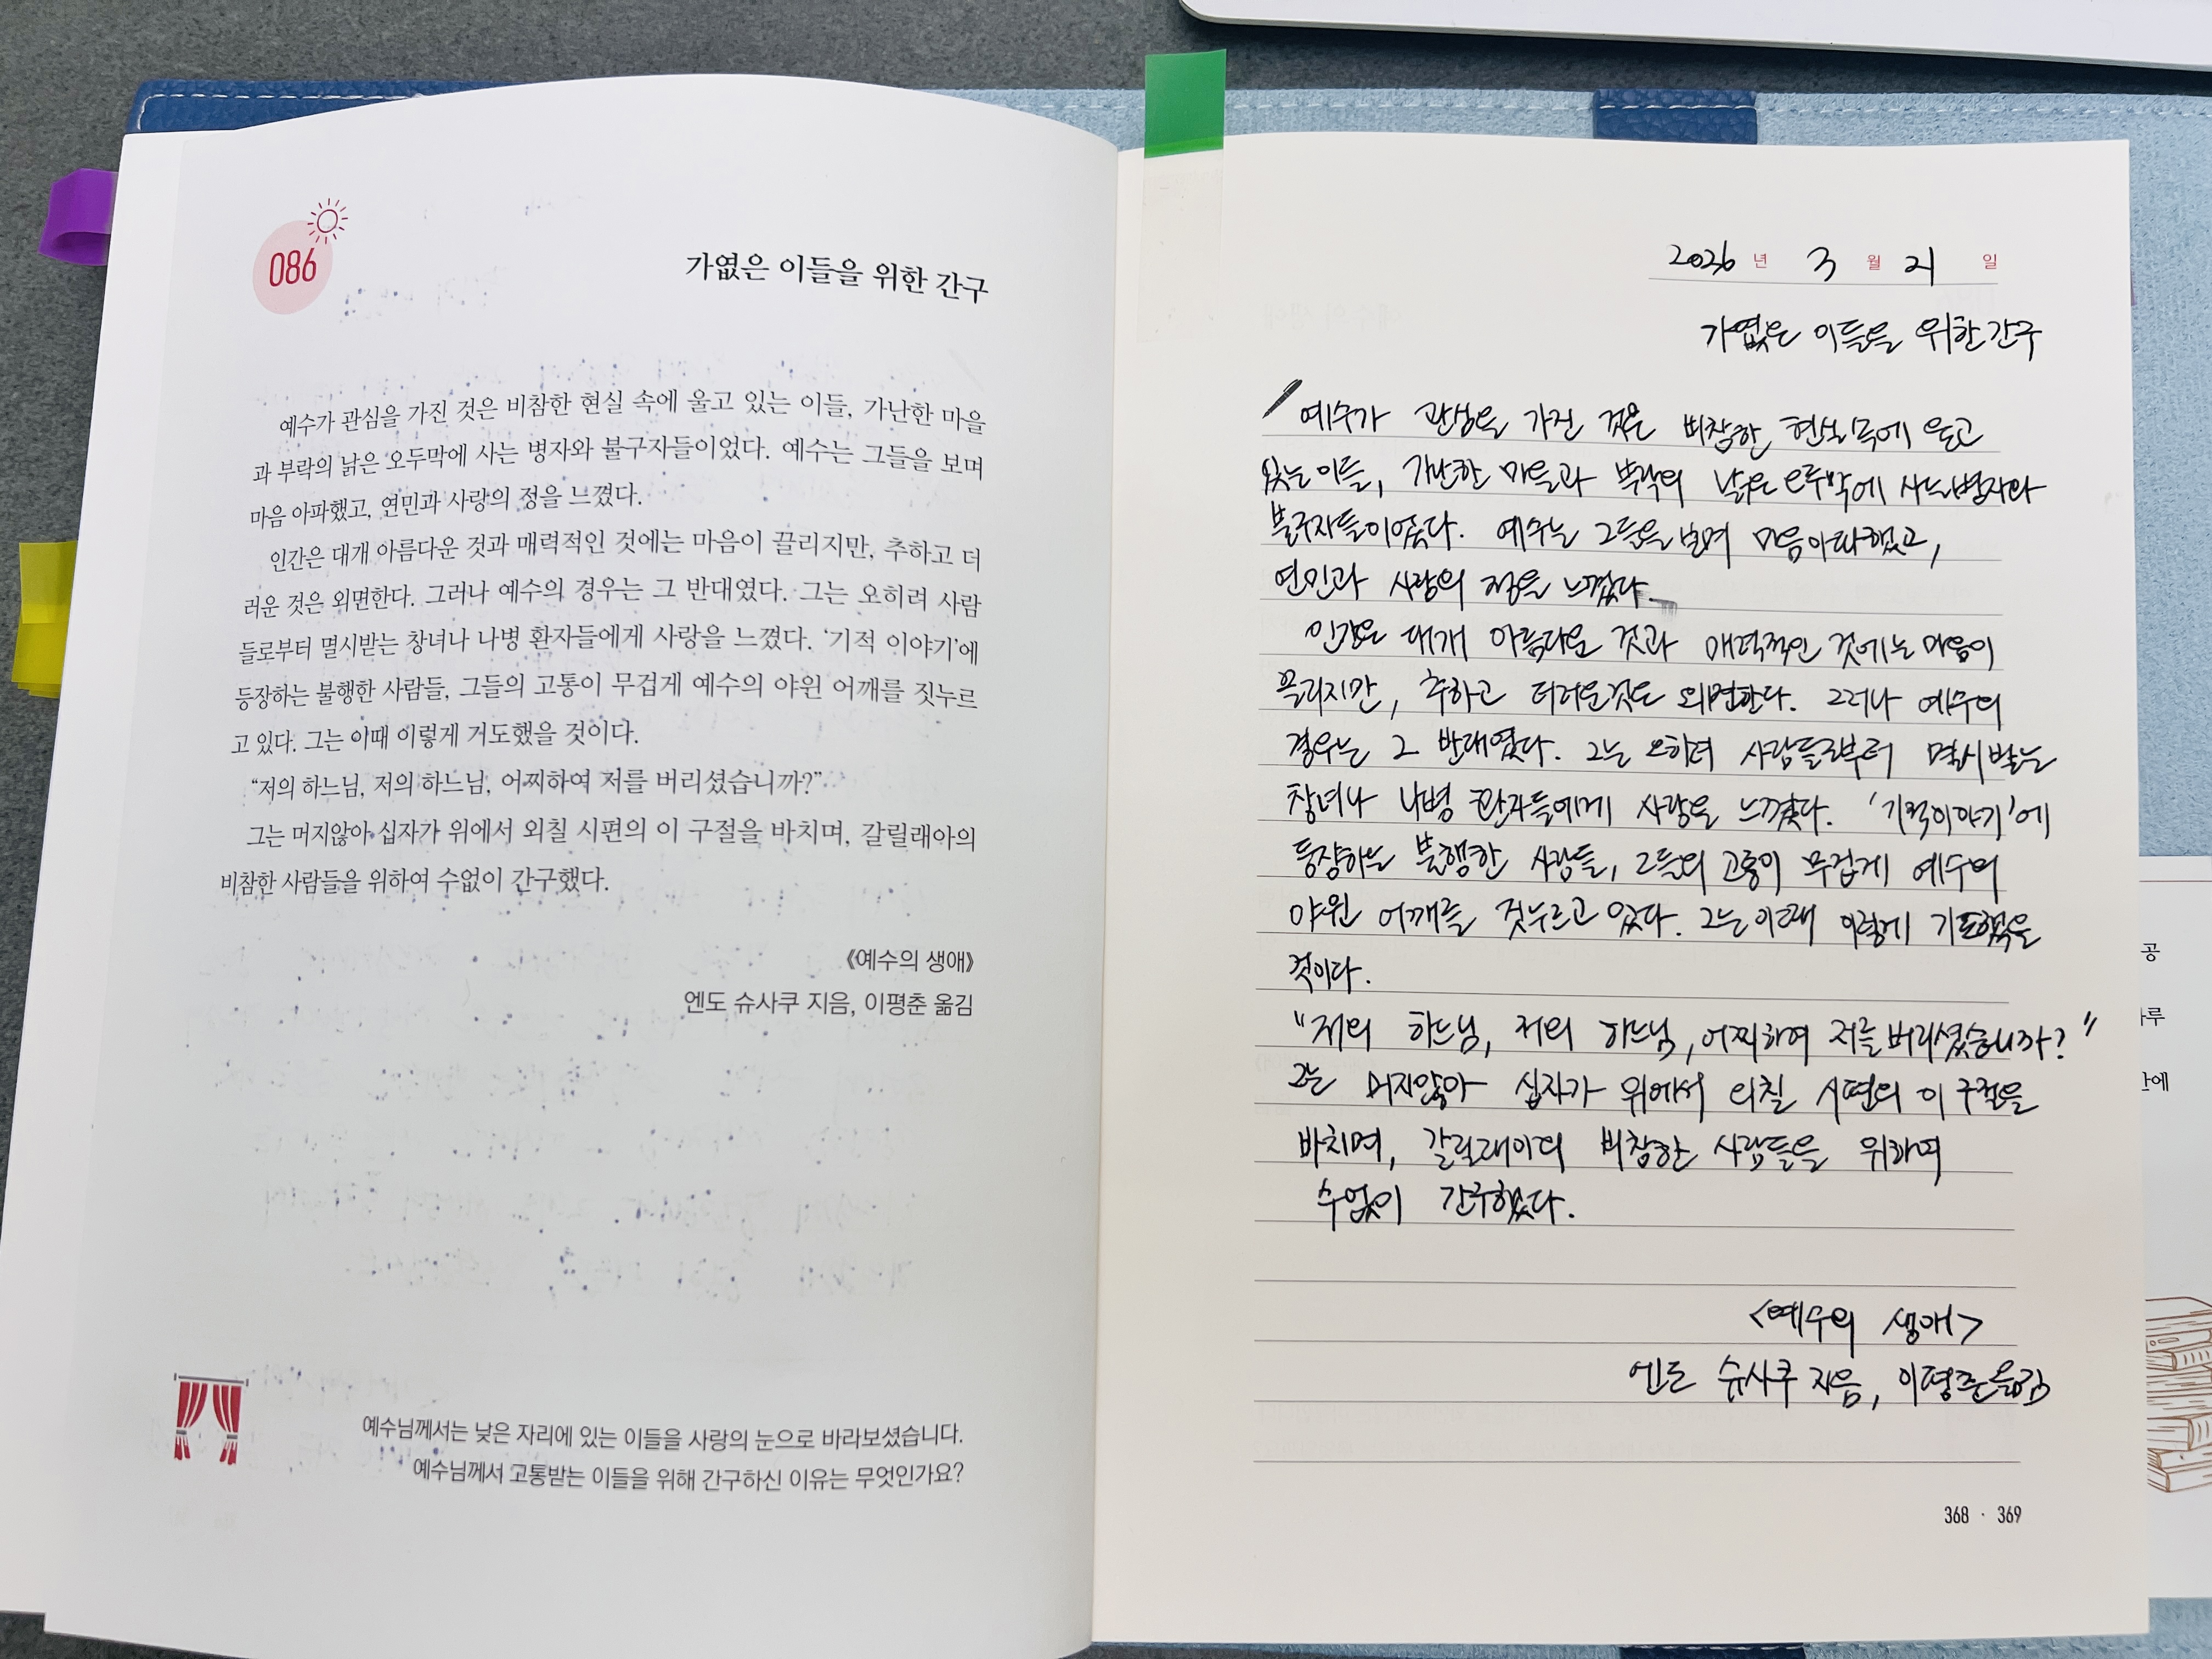 086
가엾은 이들을 위한 간구
예수가 관심을 가진 것은 비참한 현실 속에 울고 있는 이들, 가난한 마을
과 부락의 낡은 오두막에 사는 병자와 불구자들이었다. 예수는 그들을 보며
마음 아파했고, 연민과 사랑의 정을 느꼈다.
인간은 대개 아름다운 것과 매력적인 것에는 마음이 끌리지만, 추하고 더
러운 것은 외면한다. 그러나 예수의 경우는 그 반대였다. 그는 오히려 사람
들로부터 멸시받는 창녀나 나병 환자들에게 사랑을 느꼈다. ‘기적 이야기’에
등장하는 불행한 사람들, 그들의 고통이 무겁게 예수의 야윈 어깨를 짓누르
고 있다. 그는 이때 이렇게 기도했을 것이다.
“저의 하느님, 저의 하느님, 어찌하여 저를 버리셨습니까?”
그는 머지않아 십자가 위에서 외칠 시편의 이 구절을 바치며, 갈릴래아의
비참한 사람들을 위하여 수없이 간구했다.
《예수의 생애》
엔도 슈사쿠 지음, 이평춘 옮김
예수님께서는 낮은 자리에 있는 이들을 사랑의 눈으로 바라보셨습니다.
예수님께서 고통받는 이들을 위해 간구하신 이유는 무엇인가요?
2026 년 3 월 21 일
가엾은 이들을 위한 간구
예수가 관심을 가진 것은 비참한 현실 속에 울고
있는 이들, 가난한 마을과 부락의 낡은 오두막에 사는 병자와
불구자들이었다. 예수는 그들을 보며 마음 아파했고,
연민과 사랑의 정을 느꼈다.
인간은 대개 아름다운 것과 매력적인 것에는 마음이
끌리지만, 추하고 더러운 것은 외면한다. 그러나 예수의
경우는 그 반대였다. 그는 오히려 사람들로부터 멸시받는
창녀나 나병 환자들에게 사랑을 느꼈다. ‘기적 이야기’에
등장하는 불행한 사람들, 그들의 고통이 무겁게 예수의
야윈 어깨를 짓누르고 있다. 그는 이때 이렇게 기도했을
것이다.
“저의 하느님, 저의 하느님, 어찌하여 저를 버리셨습니까?”
그는 머지않아 십자가 위에서 외칠 시편의 이 구절을
바치며, 갈릴래아의 비참한 사람들을 위하여
수없이 간구했다.
<예수의 생애>
엔도 슈사쿠 지음, 이평춘 옮김
368 · 369
공
루
에